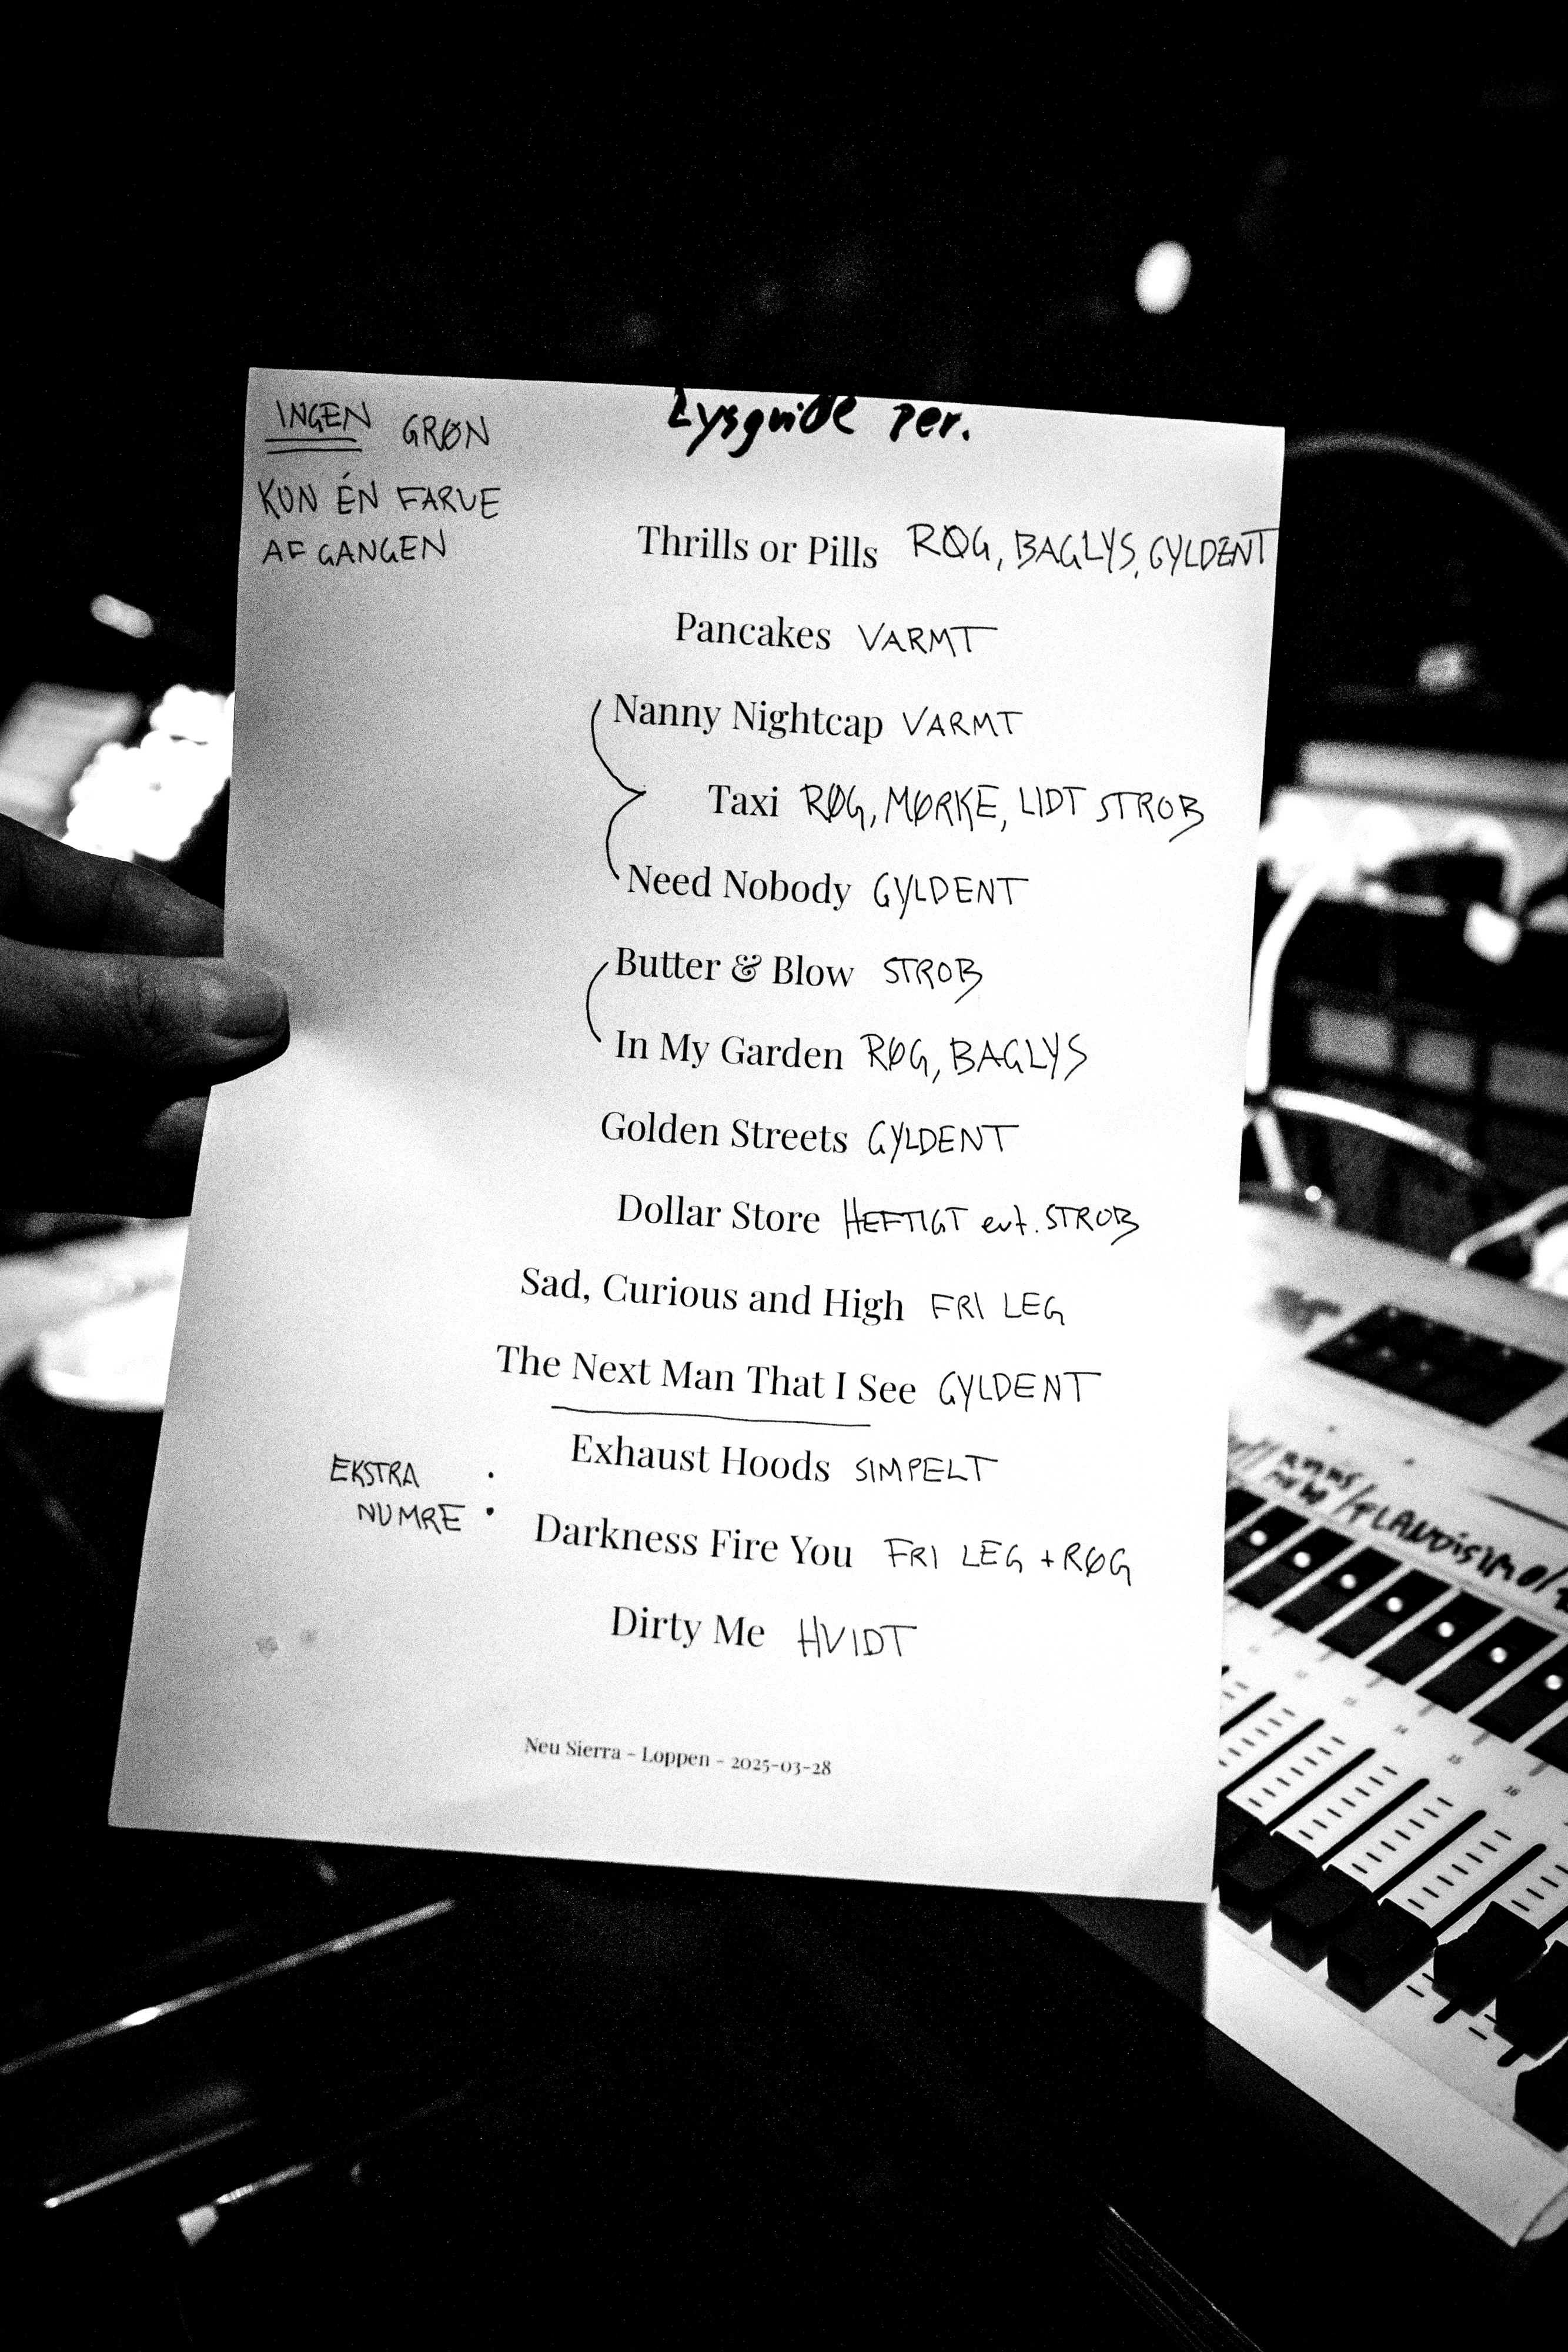 Lysguide per.
INGEN GRØN
KUN ÉN FARVE
AF GANGEN
Thrills or Pills RØG, BAGLYS, GYLDENT
Pancakes VARMT
Nanny Nightcap VARMT
Taxi RØG, MØRKE, LIDT STROB
Need Nobody GYLDENT
Butter & Blow STROB
In My Garden RØG, BAGLYS
Golden Streets GYLDENT
Dollar Store HEFTIGT evt. STROB
Sad, Curious and High FRI LEG
The Next Man That I See GYLDENT
Exhaust Hoods SIMPELT
EKSTRA
NUMRE :
Darkness Fire You FRI LEG + RØG
Dirty Me HVIDT
Neu Sierra - Loppen - 2025-03-28
14
15
16